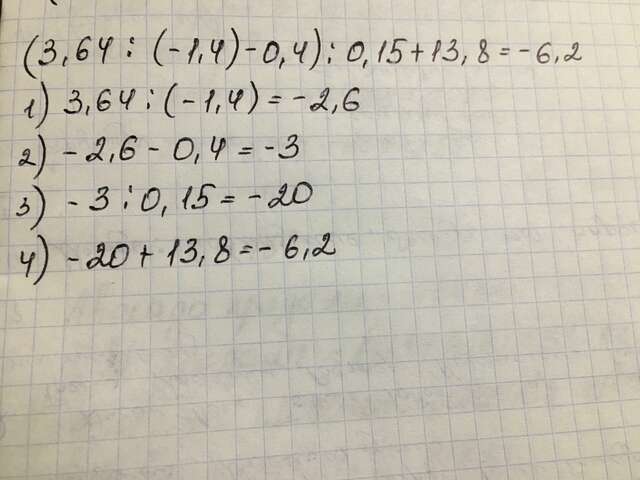 (3,64 : (-1,4) - 0,4) : 0,15 + 13,8 = -6,2
1) 3,64 : (-1,4) = -2,6
2) -2,6 - 0,4 = -3
3) -3 : 0,15 = -20
4) -20 + 13,8 = -6,2